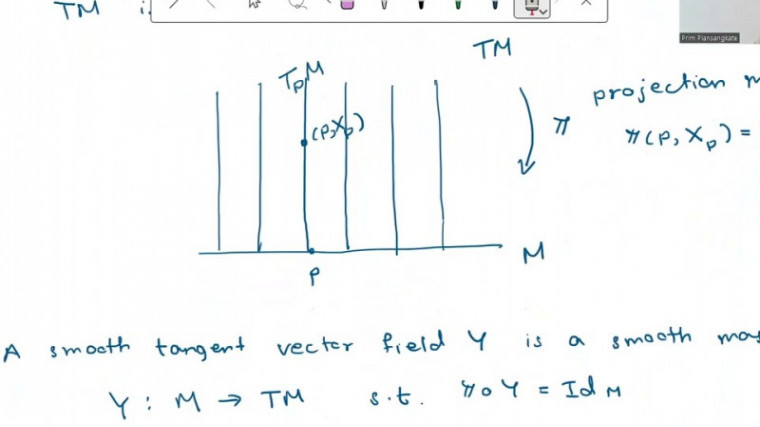 TM i
Prim Plansangkate
TM
TpM
projection m
(p,Xp)
π
π(p, Xp) =
M
p
A smooth tangent vector field Y is a smooth map
Y : M → TM s.t. π∘Y = Id_M